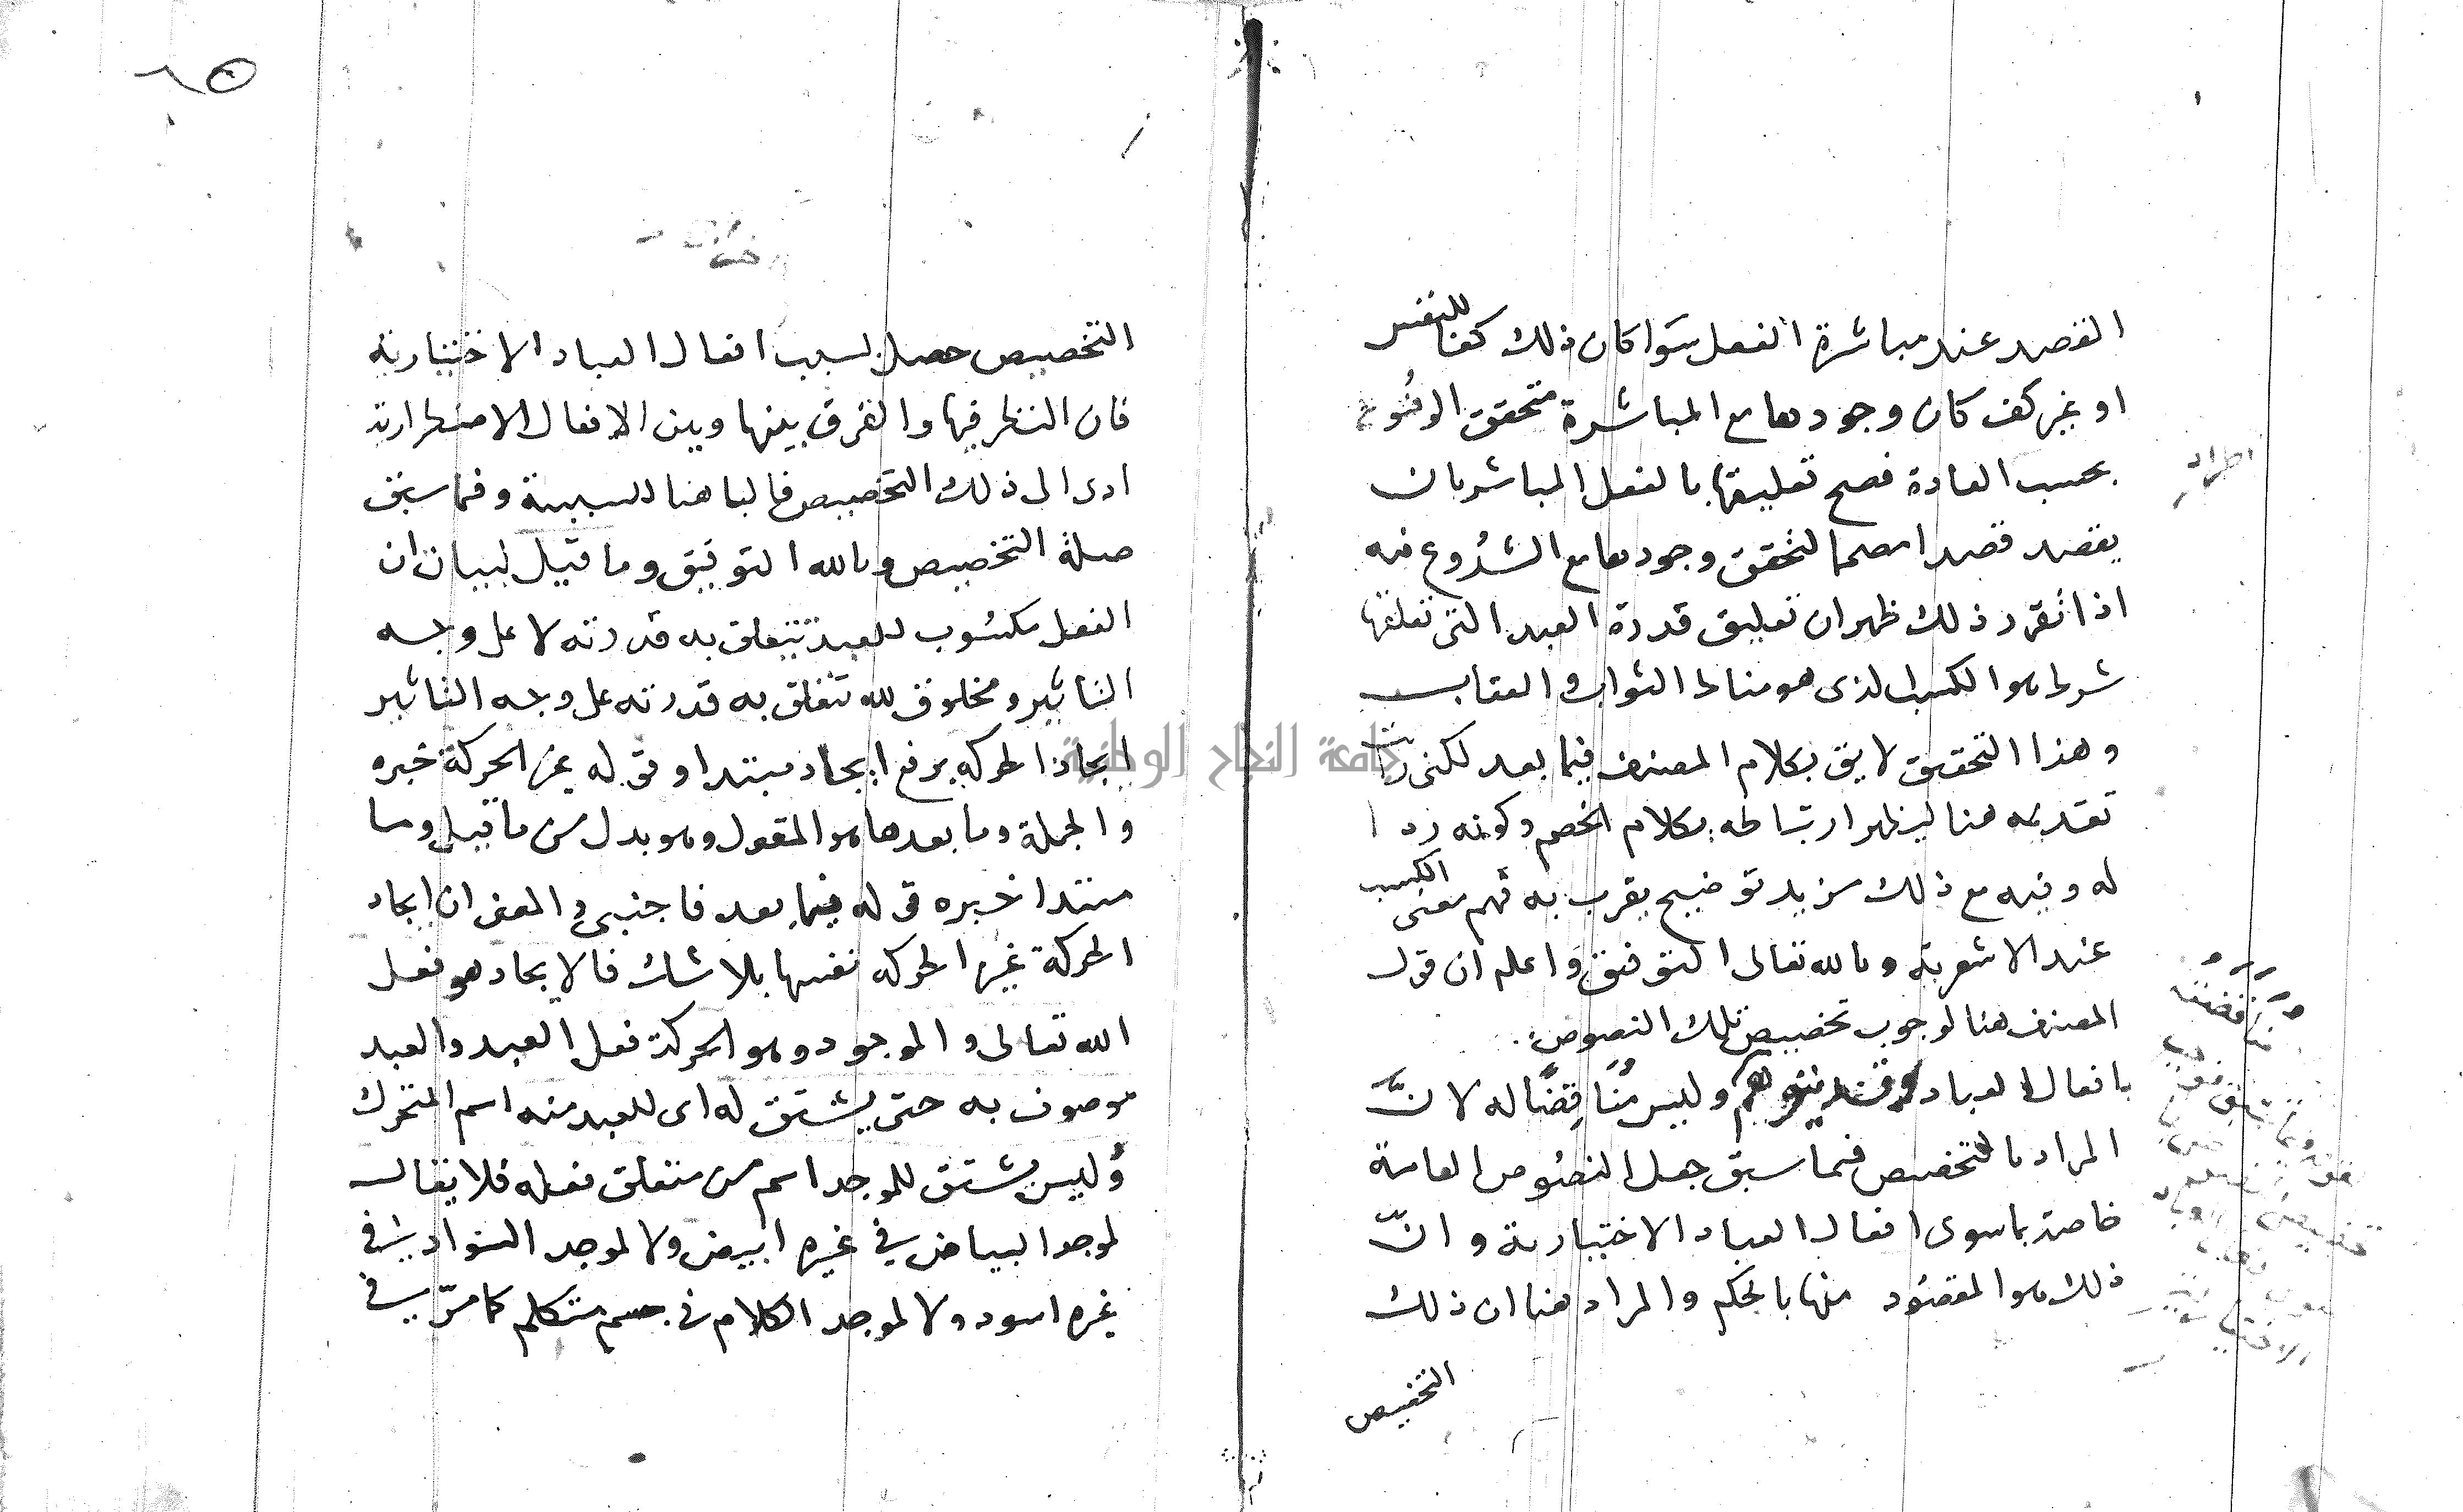 القصد عند مباشرة الفعل سَوا كان ذلك كفا للنفس
او غير كف كان وجودها مع المباشرة متحقق الوقُوع
بحسب العادة فصح تعليقها بالفعل المباشر بان
يقصد قصدا مصمما لتحقق وجودها مع الشرُوع فيه
اذا تقرر ذلك ظهر ان تعليق قدرة العبد التى تعلقها
شرط هو الكسب الذى هو مناط الثواب والعقاب
وهذا التحقيق لايق بكلام المصنف فيما بعد لكنى رايت
تقديمه هنا ليظهر ارتباطه بكلام الخصم وكونه ردا
له وفيه مع ذلك مزيد توضيح يقرب به فهم معنى الكسب
عند الاشعرية وبالله تعالى التوفيق واعلم ان قول
المصنف هنا لوجوب تخصيص تلك النصوص
بافعال العباد وليس مُنَاقِضًا له لانَّ
المراد بالتخصيص فيما سبق جعل النصُوص العامة
خاصة بما سوى افعال العباد الاختيارية وانّ
ذلك هو المقصُود منها بالحكم والمراد هنا ان ذلك
التخصيص
التخصيص حصل بسبب افعال العباد الاختيارية
فان النظر فيها والفرق بينها وبين الافعال الاضطرارية
ادى الى ذلك التخصيص فالبا هنا للسببية وفما سبق
صلة التخصيص وبالله التوفيق وما قيل لبيان ان
الفعل مكسُوب للعبد تتعلق به قدرته لا على وجه
التاثير ومخلوق لله تتعلق به قدرته على وجه التاثير
ايجاد الحركه برفع ايجاد مبتدا وقوله غير الحركة خبره
والجملة وما بعدها هو المقول وهو بدل من ما قيل وما
مبتدا خبره قوله فيما بعد فاجنبي والمعنى ان ايجاد
الحركة غير الحركه نفسها بلا شك فالايجاد هو فعل
الله تعالى والموجود وهو الحركة فعل العبد والعبد
موصوف به حتى يشتق له اى للعبد منه اسم المتحرك
وليس يشتق للموجد اسم من متعلق فعله فلا يقال
لموجد البياض في غيره ابيض ولا لموجد السواد في
غيره اسود ولا لموجد الكلام في جسم متكلم كما مرّ في
جامعة النجاح الوطنية